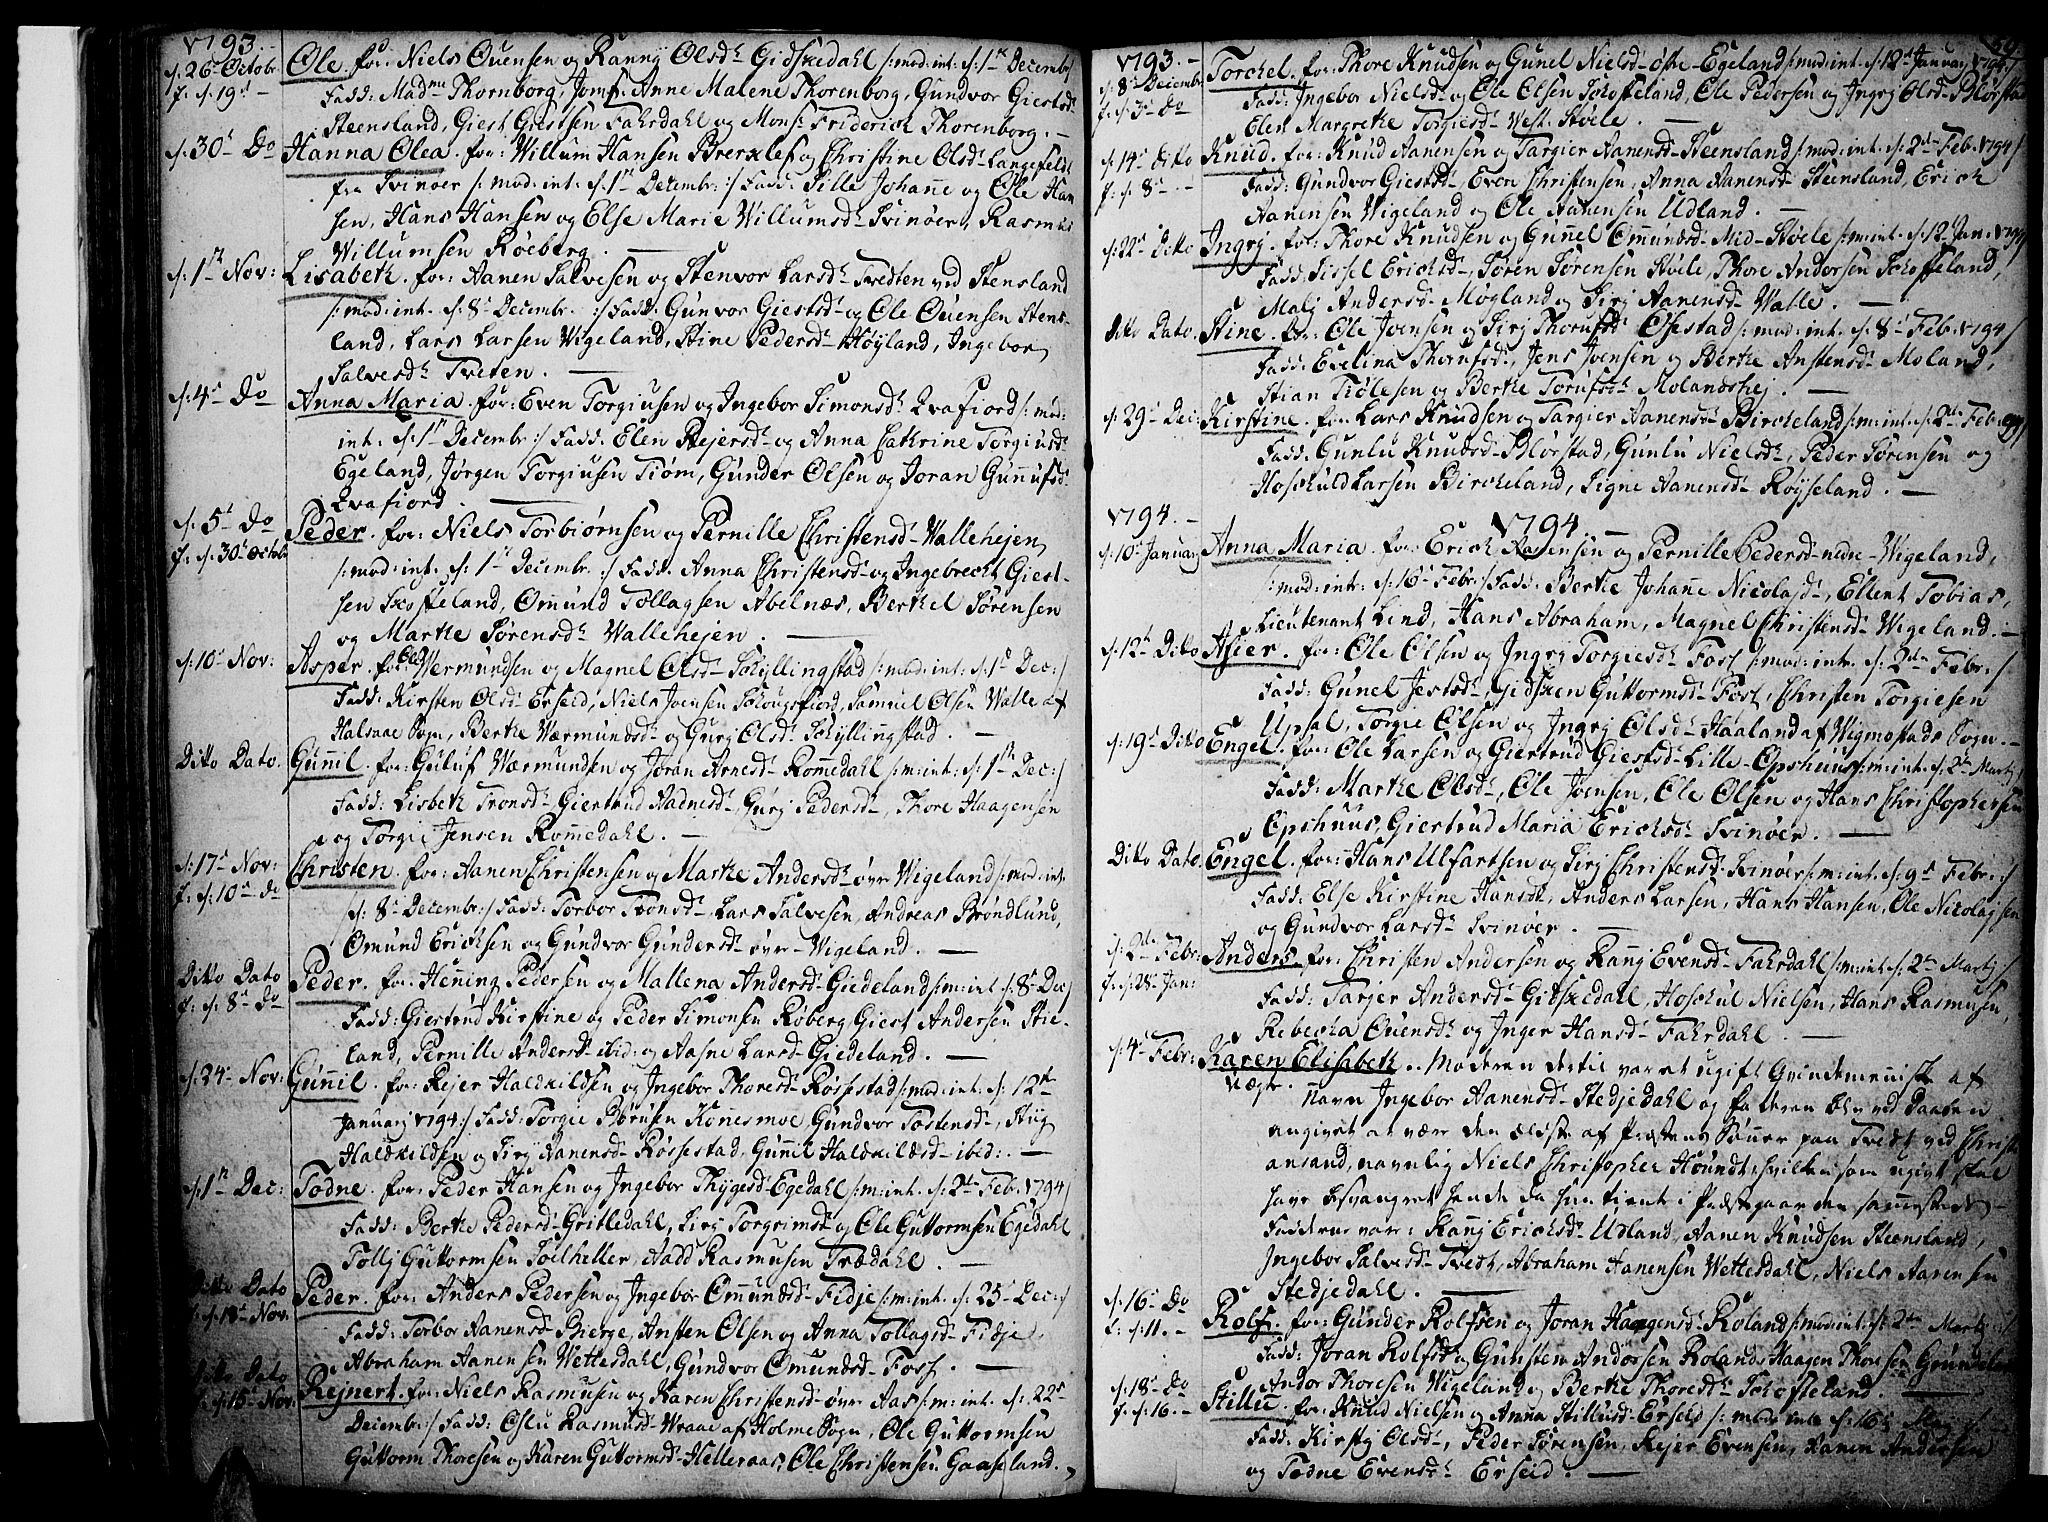 1793.
d: 26de Octobr
f: d: 19de —
Ole. for: Niels Ouensen og Ranny Olsd: Gidskedahl /: mod: int: d: 1ste Decembr:/
Fadd: Madme Thornborg, Jomf. Anne Malene Thorenborg, Gundvor Giestsd:
Steensland, Giest Giestsen Fahrdahl og Mons: Friderich Thorenborg. —
d: 30te Do
Hanna Olea. for: Willum Hansen og Christine Olsd: Langefeldt
fra Svinøer /: mod: int: d: 1ste Decembr: :/ Fadd: Sille Johanne og Ole Han
sen, Hans Hansen og Else Marie Willumsd: Svinøer, Rasmus
Willumsen Røeberg. —
d: 1ste Nov:
Lisabeth. for: Aanen Salvesen og Stenvor Larsd: Tvedten ved Stensland
/: mod: int. d: 8de Decembr. :/ Fadd: Gunvor Giestsd: og Ole Ouensen Stens-
land, Lars Larsen Wigeland, Stine Pedersd: Høyland, Ingebor
Salvesd: Tveten. —
d: 4de Do
Anna Maria. for: Even Torgiusen og Ingebor Simonsd: Qvafiord /: mod:
int: d: 1ste Decembr :/ Fadd: Elen Rejersd: og Anna Cathrine Torgiusd:
Egeland, Jørgen Torgiusen Tiøm, Gunder Olsen og Joran Gunnufsd:
Qvafiord —
d: 5te Do
f: d: 30te Octob:
Peder. for: Niels Torbiørnsen og Pernille Christensd: Wallehejen
/: mod: int. d: 1ste Decembr. :/ Fadd. Anna Christensd: og Ingebrecht Giest-
sen Skoffeland, Omund Tollagsen Abelnæs, Berthel Sørensen
og Marthe Sørensd: Wallehejen. —
d: 10de Nov:
Asper. for: Ole Wermundsen og Magnel Olsd: Schyllingstad /: mod: int: d: 1ste Dec:/
Fadd: Kirsten Olsd: Erseid, Niels Joensen Schougsfiord, Samuel Olsen Walle af
Halsaae Sogn, Berthe Wærmundsd: og Gurj Olsd: Schyllingstad. —
Ditto Dato.
Gunnil. for: Guluf Wærmundsen og Joran Arnesd: Rommedahl /: m: int: d: 1ste Dec:/
Fadd: Lisbeth Tronsd: Giertrud Aadnesd:, Gurj Pedersd:, Thore Haagensen
og Torgie Jensen Rommedahl. —
d: 17de Nov:
f: d: 10de do
Christen. for: Aanen Christensen og Marthe Andersd: øvre Wigeland /: mod: int
d: 8de Decembr :/ Fadd: Torbor Tronsd: Lars Salvesen, Andreas Brøndlund,
Omund Erichsen og Gundvor Gundersd: øvre Wigeland. —
Ditto Dato
f: d: 8de Do
Peder. for: Henning Pedersen og Mallena Andersd: Giedeland /: m: int d: 8de Dec/
Fadd: Giertrud Kirstine og Peder Simonsen Røberg, Giest Andersen Stie-
land, Pernille Andersd: ibid: og Aasne Larsd: Giedeland. —
d: 24de Nov:
Gunnil. for: Rejer Haldkildsen og Ingebor Thoresd: Røssestad /: mod: int: d: 12te
Januarj 1794 :/ Fadd: Torgie Børufen Konesmoe, Gundvor Tostensd:, Stiig
Haldkildsen og Sirj Aanensd: Røssestad, Gunnil Haldkildsd: ibid: —
d: 1ste Dec:
Todne. for: Peder Hansen og Ingebor Thygesd: Egedahl /: m: int. d: 2den Feb. 1794/
Fadd: Berthe Pedersd: Gritledahl, Sirj Torgrimsd: og Ole Guttormsen Egedahl
Tollj Guttormsen Soelheller, Aadd Rasmusen Trædahl. —
Ditto Dato
f: d: 18de Nov:
Peder. for: Anders Pedersen og Ingebor Omundsd: Fidje /: m: int: d: 25de Dec:/
Fadd: Torbor Aanensd: Bierge, Ansten Olsen og Anna Tollagsd: Fidje,
Abraham Aanensen Wettesdahl, Gundvor Omundsd: Foss. —
Ditto Dato
f: d: 15de Nov:
Rejnert. for: Niels Rasmusen og Karen Christensd: øvre Aas /: m: int. d: 22de
Decembr :/ Fadd: Oslu Rasmusd: Wraae af Holme Sogn, Ole Guttormsen
Guttorm Thoresen og Karen Guttormsd: Helleraas, Ole Christensen Gaaseland.
1793. —
d: 8de Decembr
f: d: 3de do
Torchel. for: Thore Knudsen og Gunel Nielsd: øvre Egeland /: mod: int: d: 12te Januarj 1794:/
Fadd: Ingebor Nielsd: og Ole Olsen Schoffeland, Ole Pedersen og Ingrj Olsd: Blørstad
Elen Margrethe Torgiesd: West Støele. —
d: 14de Ditto
f: d: 8de —
Knud. for: Knud Aanensen og Targier Aanensd: Steensland /: mod: int: d: 2den Feb. 1794/
Fadd: Gundvor Giestsd:, Even Christensen, Anna Aanensd: Steensland, Erich
Aanensen Wigeland og Ole Aanensen Udland. —
d: 22de Ditto
Ingrj. for: Thore Knudsen og Gunnel Omundsd: Mid-Støele /: m: int. d: 12te Jan. 1794/
Fadd: Sissel Erichsd:, Søren Sørensen Støele, Thore Andersen Schoffeland,
Malj Andersd: Møgland og Sirj Aanensd: Walle. —
Ditto Dato.
Stine. for: Ole Joensen og Sirj Thorufsd: Ofestad /: mod: int: d: 8de Feb. 1794/
Fadd: Evelina Thorufsd:, Jens Joensen og Berthe Anstensd: Moland,
Stian Tiølesen og Berthe Torufsd: Molandshej. —
d: 29de Dec:
Kirstine. for: Lars Knudsen og Targier Aanensd: Birckeland /: m: int. d: 2den Feb. 94/
Fadd: Gunlu Knudsd: Blørstad, Gunlu Nielsd:, Peder Sørensen og
Hoschuld Larsen Birckeland, Signe Aanensd: Røyseland. —
1794. —
1794. —
d: 10de Januarj
Anna Maria. for: Erich Aanensen og Pernille Pedersd: nedre Wigeland,
/: mod: int: d: 16de Febr :/ Fadd: Berthe Johanne Nicolajsd:, Ellent Tobias,
Lieutenant Lind, Hans Abraham, Magnel Christensd: Wigeland. —
d: 12te Ditto
Asier. for: Ole Olsen og Ingrj Torgiesd: Foss /: mod: int: d: 2den Febr: :/
Fadd: Gunel Jestsd:, Gidsken Guttormsd: Foss, Christen Torgiesen
Upsal, Torgie Olsen og Ingrj Olsd: Haaland af Wigmostads Sogn. —
d: 19de Ditto
Engel. for: Ole Larsen og Giertrud Giestsd: Lille-Opshuus /: m: int. d: 2den Martj/
Fadd: Marthe Olsd:, Ole Joensen, Ole Olsen og Hans Christophersen
Opshuus, Giertrud Maria Erichsd: Svinøer. —
Ditto Dato.
Engel. for: Hans Ulfartsen og Sirj Christensd: Svinøer /: m: int. d: 9de Febr: :/
Fadd: Else Kirstine Hansd:, Anders Larsen, Hans Hansen, Ole Nicolajsen
og Gundvor Larsd: Svinøer. —
d: 2den Febr:
f: d: 28de Jan:
Anders. for: Christen Andersen og Rannj Evensd: Fahrdahl /: m: int: d: 2den Martj :/
Fadd: Tarjer Andersd: Gidskedahl, Hoschul Nielsen, Hans Rasmusen,
Rebecka Ouensd: og Inger Hansd: Fahrdahl. —
d: 4de Febr:
Karen Elisabeth. Uægte. Moderen dertil var et ugift Qvindemenniske af
navn Ingebor Aanensd: Stedjedahl og Faderen blev ved Daaben
angivet at være den ældste af Præstens Sønner paa Tvedt ved Christi
ansand, navnlig Niels Christopher Houndt, hvilken som ugivt skal
have besvangret hende da hun tiente i Præstegaarden sammesteds —
Fadderne vare: Rannj Erichsd: Udland, Aanen Knudsen Steensland,
Ingebor Salvesd: Tvedt, Abraham Aanensen Wettesdahl, Niels Aanensen
Stedjedahl. —
d: 16de Do
f: d: 11. —
Rolf. for: Gunder Rolfsen og Joran Haagensd: Roland /: mod: int: d: 2den Martj :/
Fadd: Joran Rolfsd: og Gunsten Andorsen Roland, Haagen Thoresen Grundeland
Andor Thoresen Wigeland og Berthe Thoresd: Schoffeland. —
d: 18de Do
f: d: 16. —
Stillu. for: Knud Nielsen og Anna Stillusd: Erseid /: mod: int: d: 16de
Fadd: Kirstj Olsd:, Peder Sørensen, Rejer Evensen, Aanen Andersen
og Todne Evensd: Erseid. —